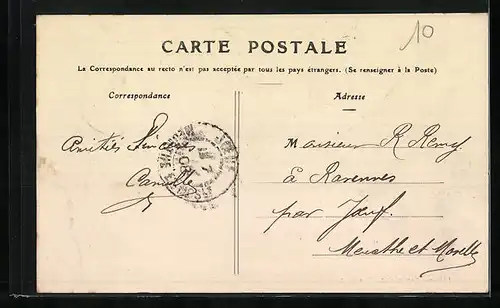 10
CARTE POSTALE
La Correspondance au recto n'est pas acceptée par tous les pays étrangers. (Se renseigner à la Poste)
Correspondance
Adresse
Amitiés Sincères
Camille
Monsieur R Remy
à Varennes
par Jouf.
Meurthe et Moselle